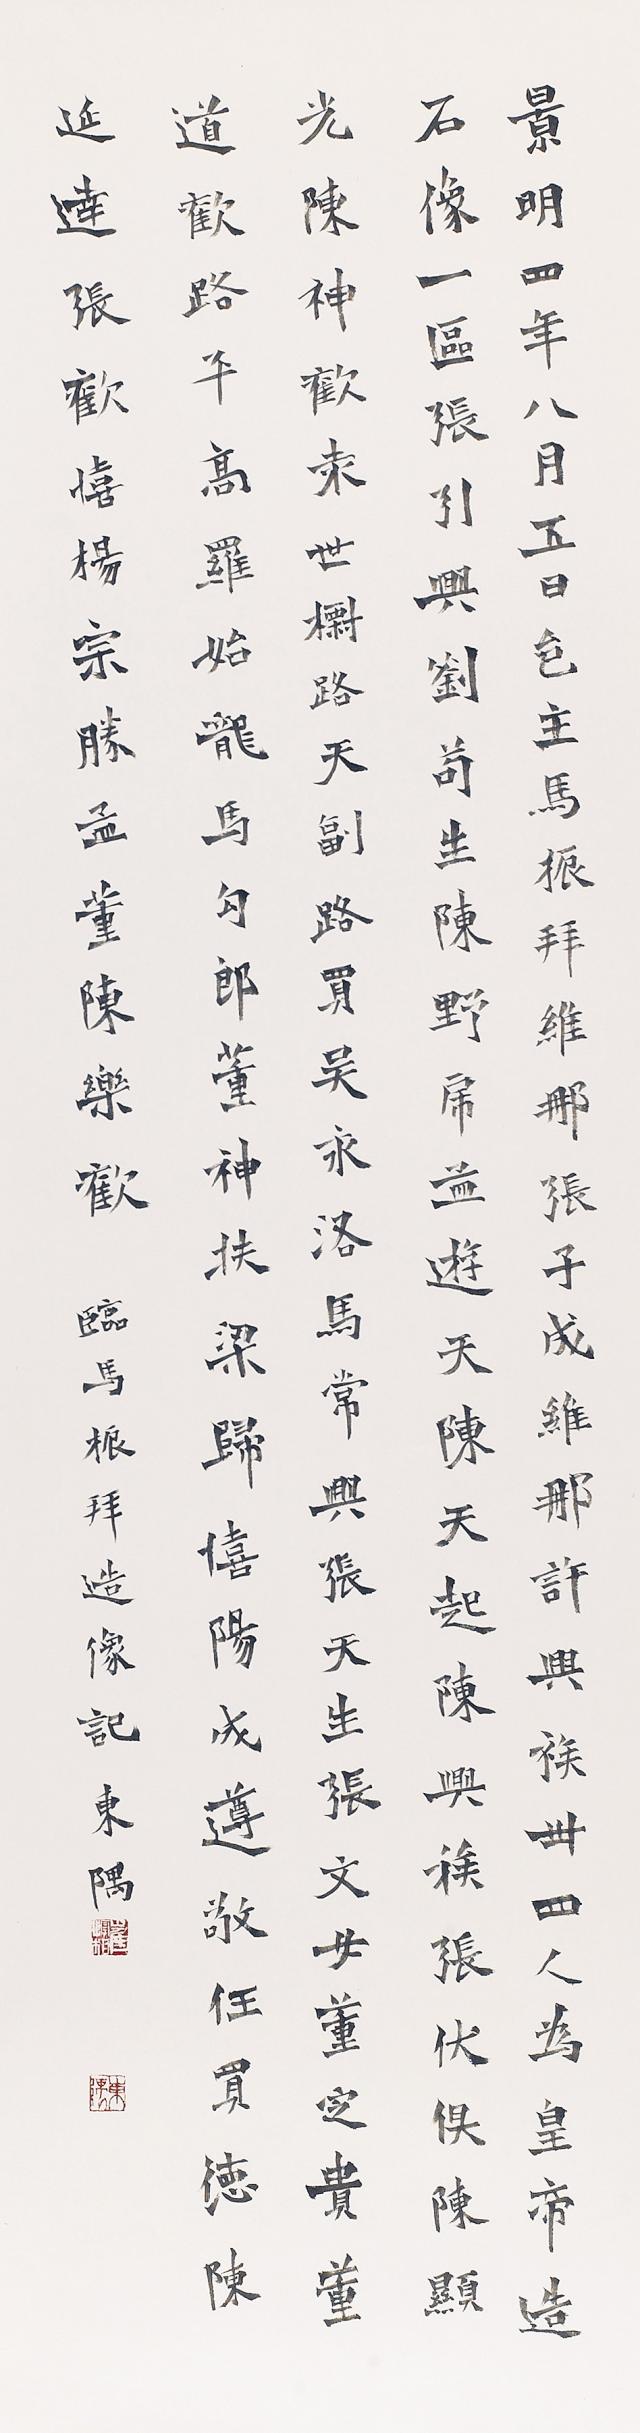 景明四年八月五日邑主馬振拜維那張子成維那許興族卅四人為皇帝造
石像一區張引興劉苟生陳野虎益遊天陳天起陳興族張伏俱陳顯
光陳神歡來世櫥路天副路買吴永洛馬常興張天生張文安董定貴董
道歡路平高羅始龍馬勾郎董神扶梁歸憘陽成遵敬任買德陳
延達張歡憘楊宗勝孟董陳樂歡 臨馬振拜造像記東隅